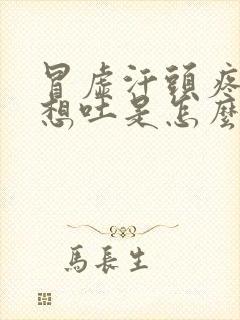 冒虛汗頭疼
想吐是怎麼
馬長生